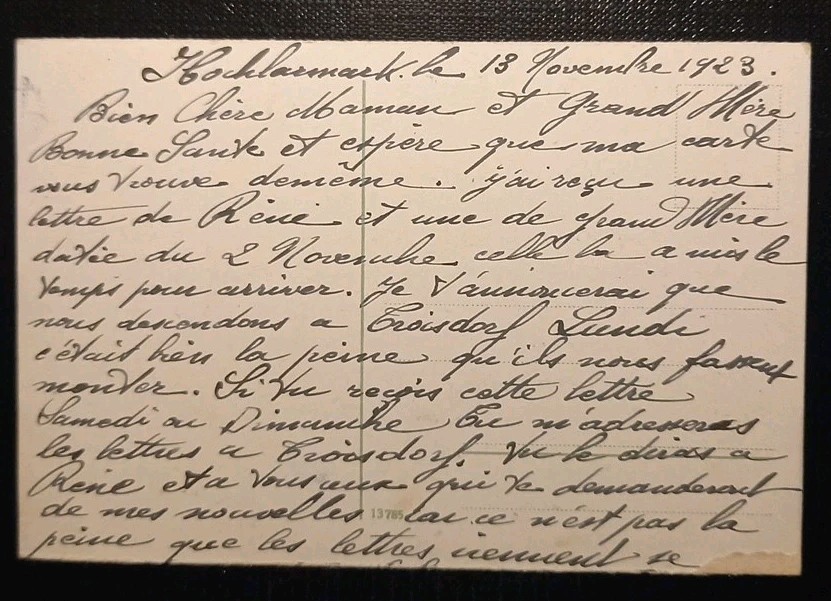 Hochlarmark. le 13 Novembre 1923.
Bien Chère Maman et Grand Mère
Bonne Santé et espère que ma carte
vous trouve demême. j'ai reçu une
lettre de Réné et une de grand Mère
datée du 2 Novembre celle la a mis le
temps pour arriver. Je t'annoncerai que
nous descendons a Troisdorf Lundi
c'était bien la peine qu'ils nous fassent
monter. Si tu reçois cette lettre
Samedi ou Dimanche Tu m'adresseras
les lettres a Troisdorf tu le diras a
Réné et a tous ceux qui te demanderont
de mes nouvelles car ce n'est pas la
13785
peine que les lettres viennent se